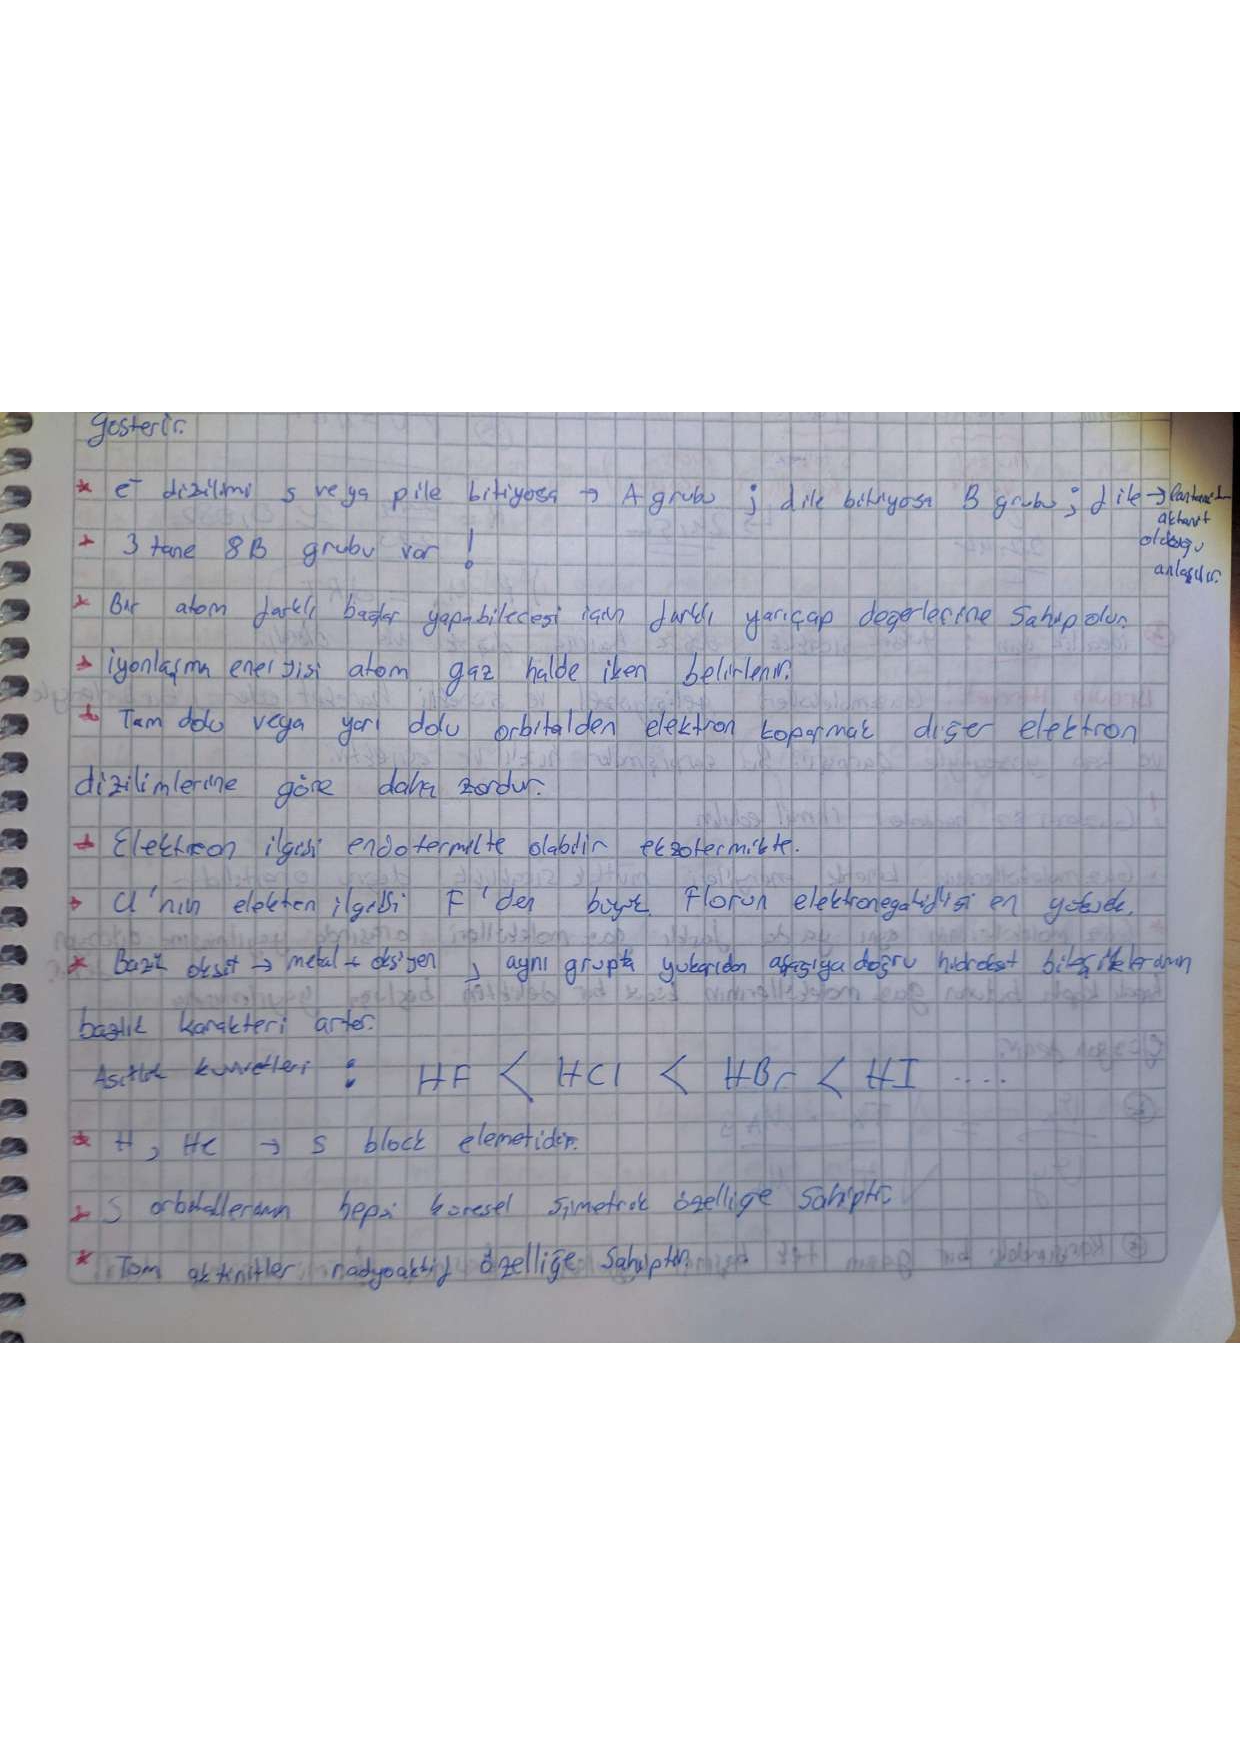 gösterir.
* e⁻ dizilimi s veya p ile bitiyosa → A grubu ; d ile bitiyosa B grubu ; f ile → lantanit
aktinit
olduğu
anlaşılır.
* 3 tane 8B grubu var !
* Bir atom farklı bağlar yapabileceği için farklı yarıçap değerlerine sahip olur.
* iyonlaşma enerjisi atom gaz halde iken belirlenir.
* Tam dolu veya yarı dolu orbitalden elektron koparmak diğer elektron
dizilimlerine göre daha zordur.
* Elektron ilgisi endotermikte olabilir ekzotermikte.
* Cl'nin elekton ilgisi F'den büyük. Florun elektronegatifliği en yüksek.
* Bazik oksit → metal + oksijen ; aynı grupta yukarıdan aşağıya doğru hidroksit bileşiklerinin
bazlık karakteri artar.
Asitlik kuvvetleri : HF < HCl < HBr < HI ....
* H, He → s block elemetidir.
* S orbitallerinin hepsi küresel simetrik özelliğe sahiptir.
* Tüm aktinitler radyoaktif özelliğe sahiptir.